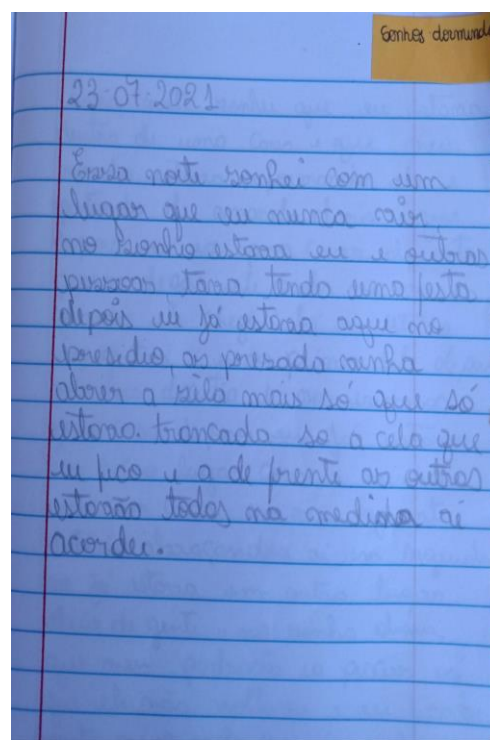 Sonhos dormindo
23-07-2021
Essa noite sonhei com um
lugar que eu nunca vair,
no sionho estava eu e outras
pessoas, tava tendo uma festa
depois eu já estava aqui no
presidio, as presada vainha
abrer a sela mais só que só
estava. trancada so a cela que
eu fico e a de frente as outras
estavão todas na medida ai
acordei.